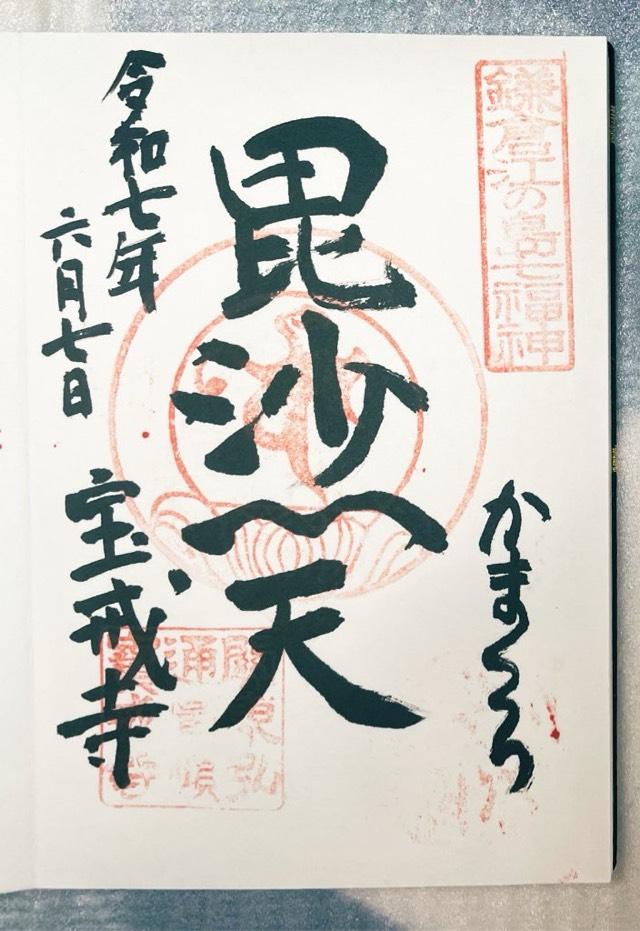 鎌倉江の島七福神
かまくら
毘沙門天
令和七年
六月七日
宝戒寺